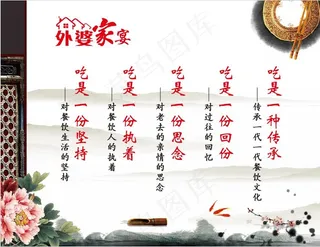 外婆家宴
吃是一种传承
——传承一代一代餐饮文化
吃是一份回份
——对过往的回忆
吃是一份思念
——对老去的亲情的思念
吃是一份执着
——对餐饮人的执着
吃是一份坚持
——对餐饮生活的坚持